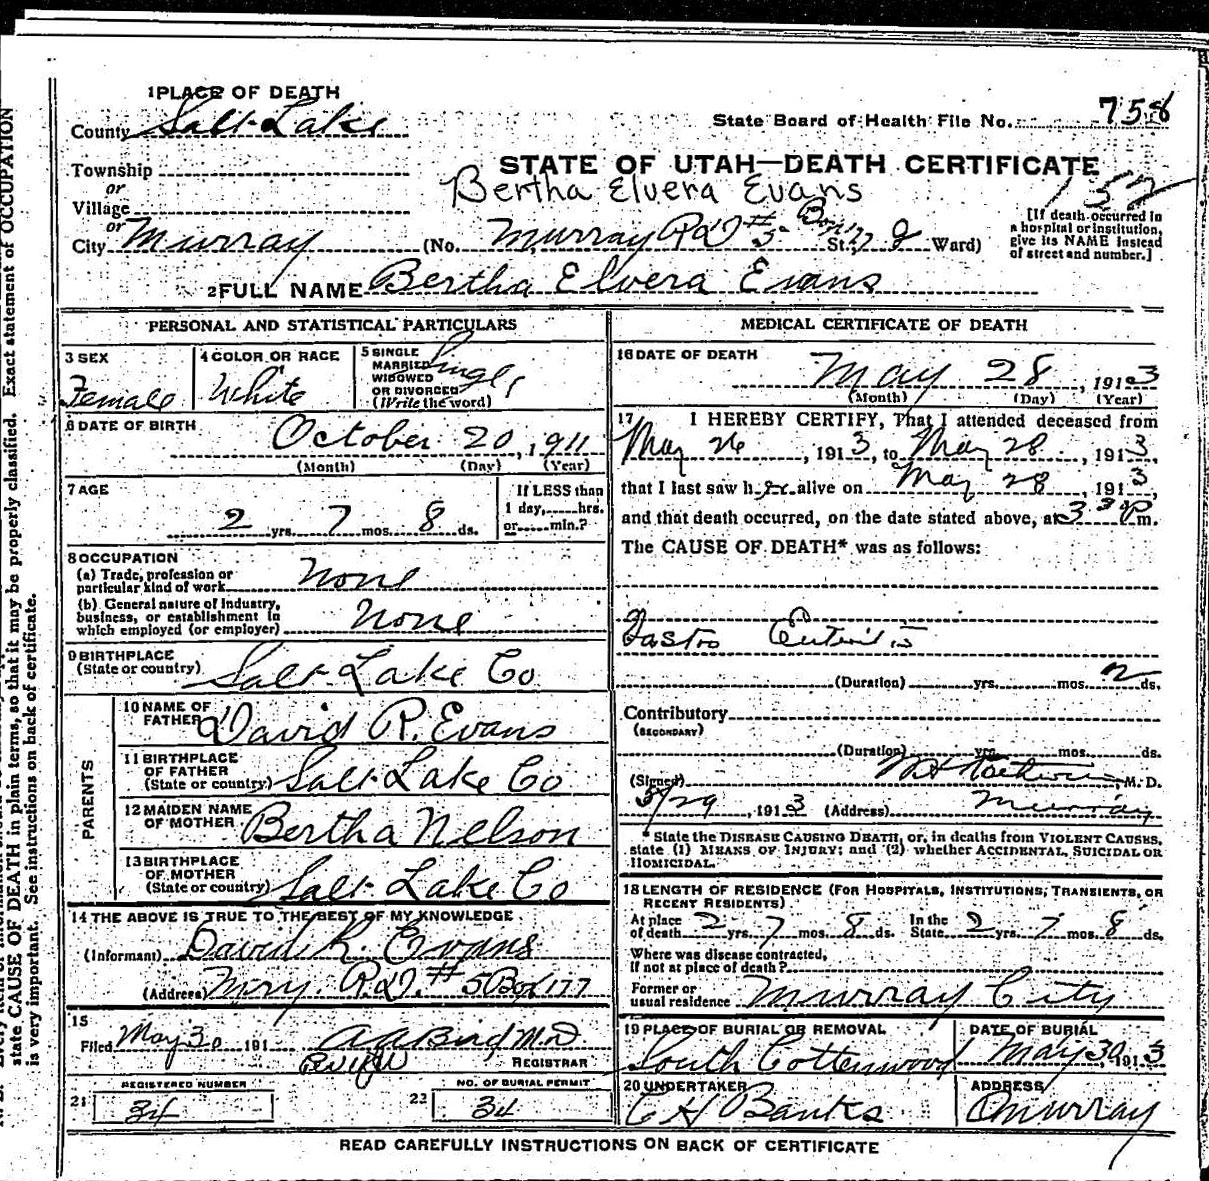 1 PLACE OF DEATH
County Salt Lake
State Board of Health File No. 758
Township
STATE OF UTAH—DEATH CERTIFICATE
or
Village
Bertha Elvera Evans
152
or
City Murray (No. Murray R.D. #5 Box 177 St., 2 Ward)
[If death occurred in
a hospital or institution,
give its NAME instead
of street and number.]
2 FULL NAME Bertha Elvera Evans
PERSONAL AND STATISTICAL PARTICULARS
3 SEX
Female
4 COLOR OR RACE
White
5 SINGLE
MARRIED
WIDOWED
OR DIVORCED
(Write the word)
Single
6 DATE OF BIRTH
October 20, 1911
(Month) (Day) (Year)
7 AGE
2 yrs. 7 mos. 8 ds.
If LESS than
1 day, hrs.
or min.?
8 OCCUPATION
(a) Trade, profession or
particular kind of work None
(b) General nature of Industry,
business, or establishment in
which employed (or employer) None
9 BIRTHPLACE
(State or country) Salt Lake Co
PARENTS
10 NAME OF
FATHER David R. Evans
11 BIRTHPLACE
OF FATHER
(State or country) Salt Lake Co
12 MAIDEN NAME
OF MOTHER Bertha Nelson
13 BIRTHPLACE
OF MOTHER
(State or country) Salt Lake Co
14 THE ABOVE IS TRUE TO THE BEST OF MY KNOWLEDGE
(Informant) David R. Evans
(Address) Mury. R.D. #5 Box 177
15
Filed May 30 191
REGISTRAR
REGISTERED NUMBER
21 34
NO. OF BURIAL PERMIT
22 34
MEDICAL CERTIFICATE OF DEATH
16 DATE OF DEATH
May 28, 1913
(Month) (Day) (Year)
17 I HEREBY CERTIFY, That I attended deceased from
May 26, 1913, to May 28, 1913,
that I last saw her alive on May 28, 1913,
and that death occurred, on the date stated above, at 3 30 P m.
The CAUSE OF DEATH* was as follows:
Gastro Enteritis
(Duration) yrs. mos. 2 ds.
Contributory
(SECONDARY)
(Duration) yrs. mos. ds.
(Signed) M.D.
5/29, 1913 (Address) Murray
* State the DISEASE CAUSING DEATH, or, in deaths from VIOLENT CAUSES,
state (1) MEANS OF INJURY; and (2) whether ACCIDENTAL, SUICIDAL OR
HOMICIDAL.
18 LENGTH OF RESIDENCE (FOR HOSPITALS, INSTITUTIONS, TRANSIENTS, OR
RECENT RESIDENTS)
At place
of death 2 yrs. 7 mos. 8 ds. In the
State 2 yrs. 7 mos. 8 ds.
Where was disease contracted,
if not at place of death?
Former or
usual residence Murray City
19 PLACE OF BURIAL OR REMOVAL
South Cottonwood
DATE OF BURIAL
May 30 1913
20 UNDERTAKER
C H Banks
ADDRESS
Murray
READ CAREFULLY INSTRUCTIONS ON BACK OF CERTIFICATE
state CAUSE OF DEATH in plain terms, so that it may be properly classified. Exact statement of OCCUPATION
is very important. See instructions on back of certificate.